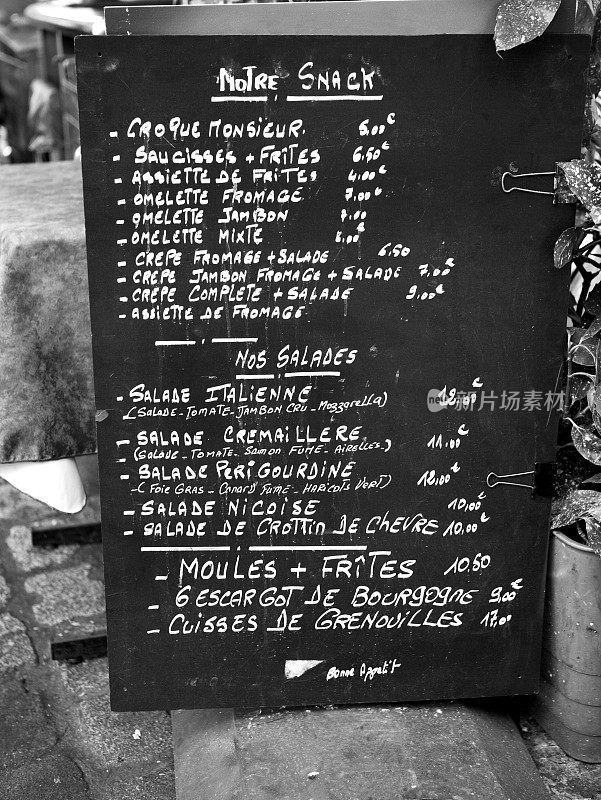 NOTRE SNACK
- CROQUE MONSIEUR 5,00€
- SAUCISSES + FRITES 6,50€
- ASSIETTE DE FRITES 4,00€
- OMELETTE FROMAGE 7,00€
- OMELETTE JAMBON 7,00
- OMELETTE MIXTE 8,00€
- CREPE FROMAGE + SALADE 6,50
- CREPE JAMBON FROMAGE + SALADE 7,00€
- CREPE COMPLETE + SALADE 9,00€
- ASSIETTE DE FROMAGE
NOS SALADES
- SALADE ITALIENNE 12,00€
(SALADE - TOMATE - JAMBON CRU - Mozzarella)
- SALADE CREMAILLERE 11,00€
(SALADE - TOMATE - Samon FUME - AIRELLES -)
- SALADE PERIGOURDINE 12,00€
-(FOIE GRAS - Canard FUME - HARICOTS VERT)
- SALADE NICOISE 10,00€
- SALADE DE CROTTIN DE CHEVRE 10,00€
- MOULES + FRÎTES 10,50
- 6 ESCARGOT DE BOURGOGNE 9,00€
- CUISSES DE GRENOUILLES 17,00
Bonne Appetit
视觉中国